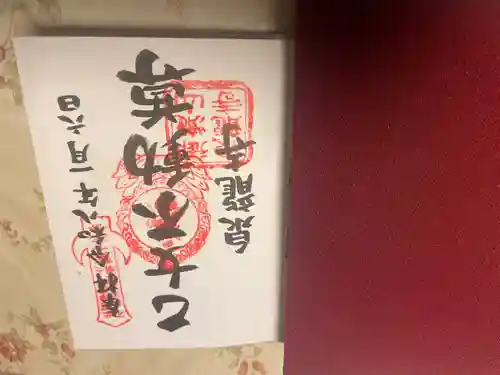 奉拝 令和八年一月六日
乙女不動尊
泉龍寺